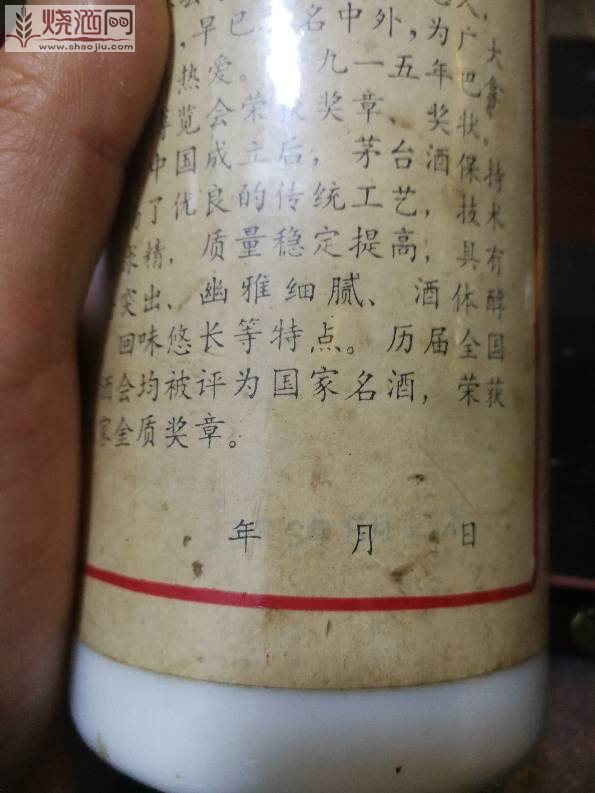 烧酒网
www.shaojiu.com
，早已 名中外，为广大
热爱。 九一五年巴拿
览会荣获奖章、奖状。
中国成立后，茅台酒保持
了优良的传统工艺，技术
精，质量稳定提高，具有
突出、幽雅细腻、酒体醇
回味悠长等特点。历届全国
酒会均被评为国家名酒，荣获
家金质奖章。
年 月 日